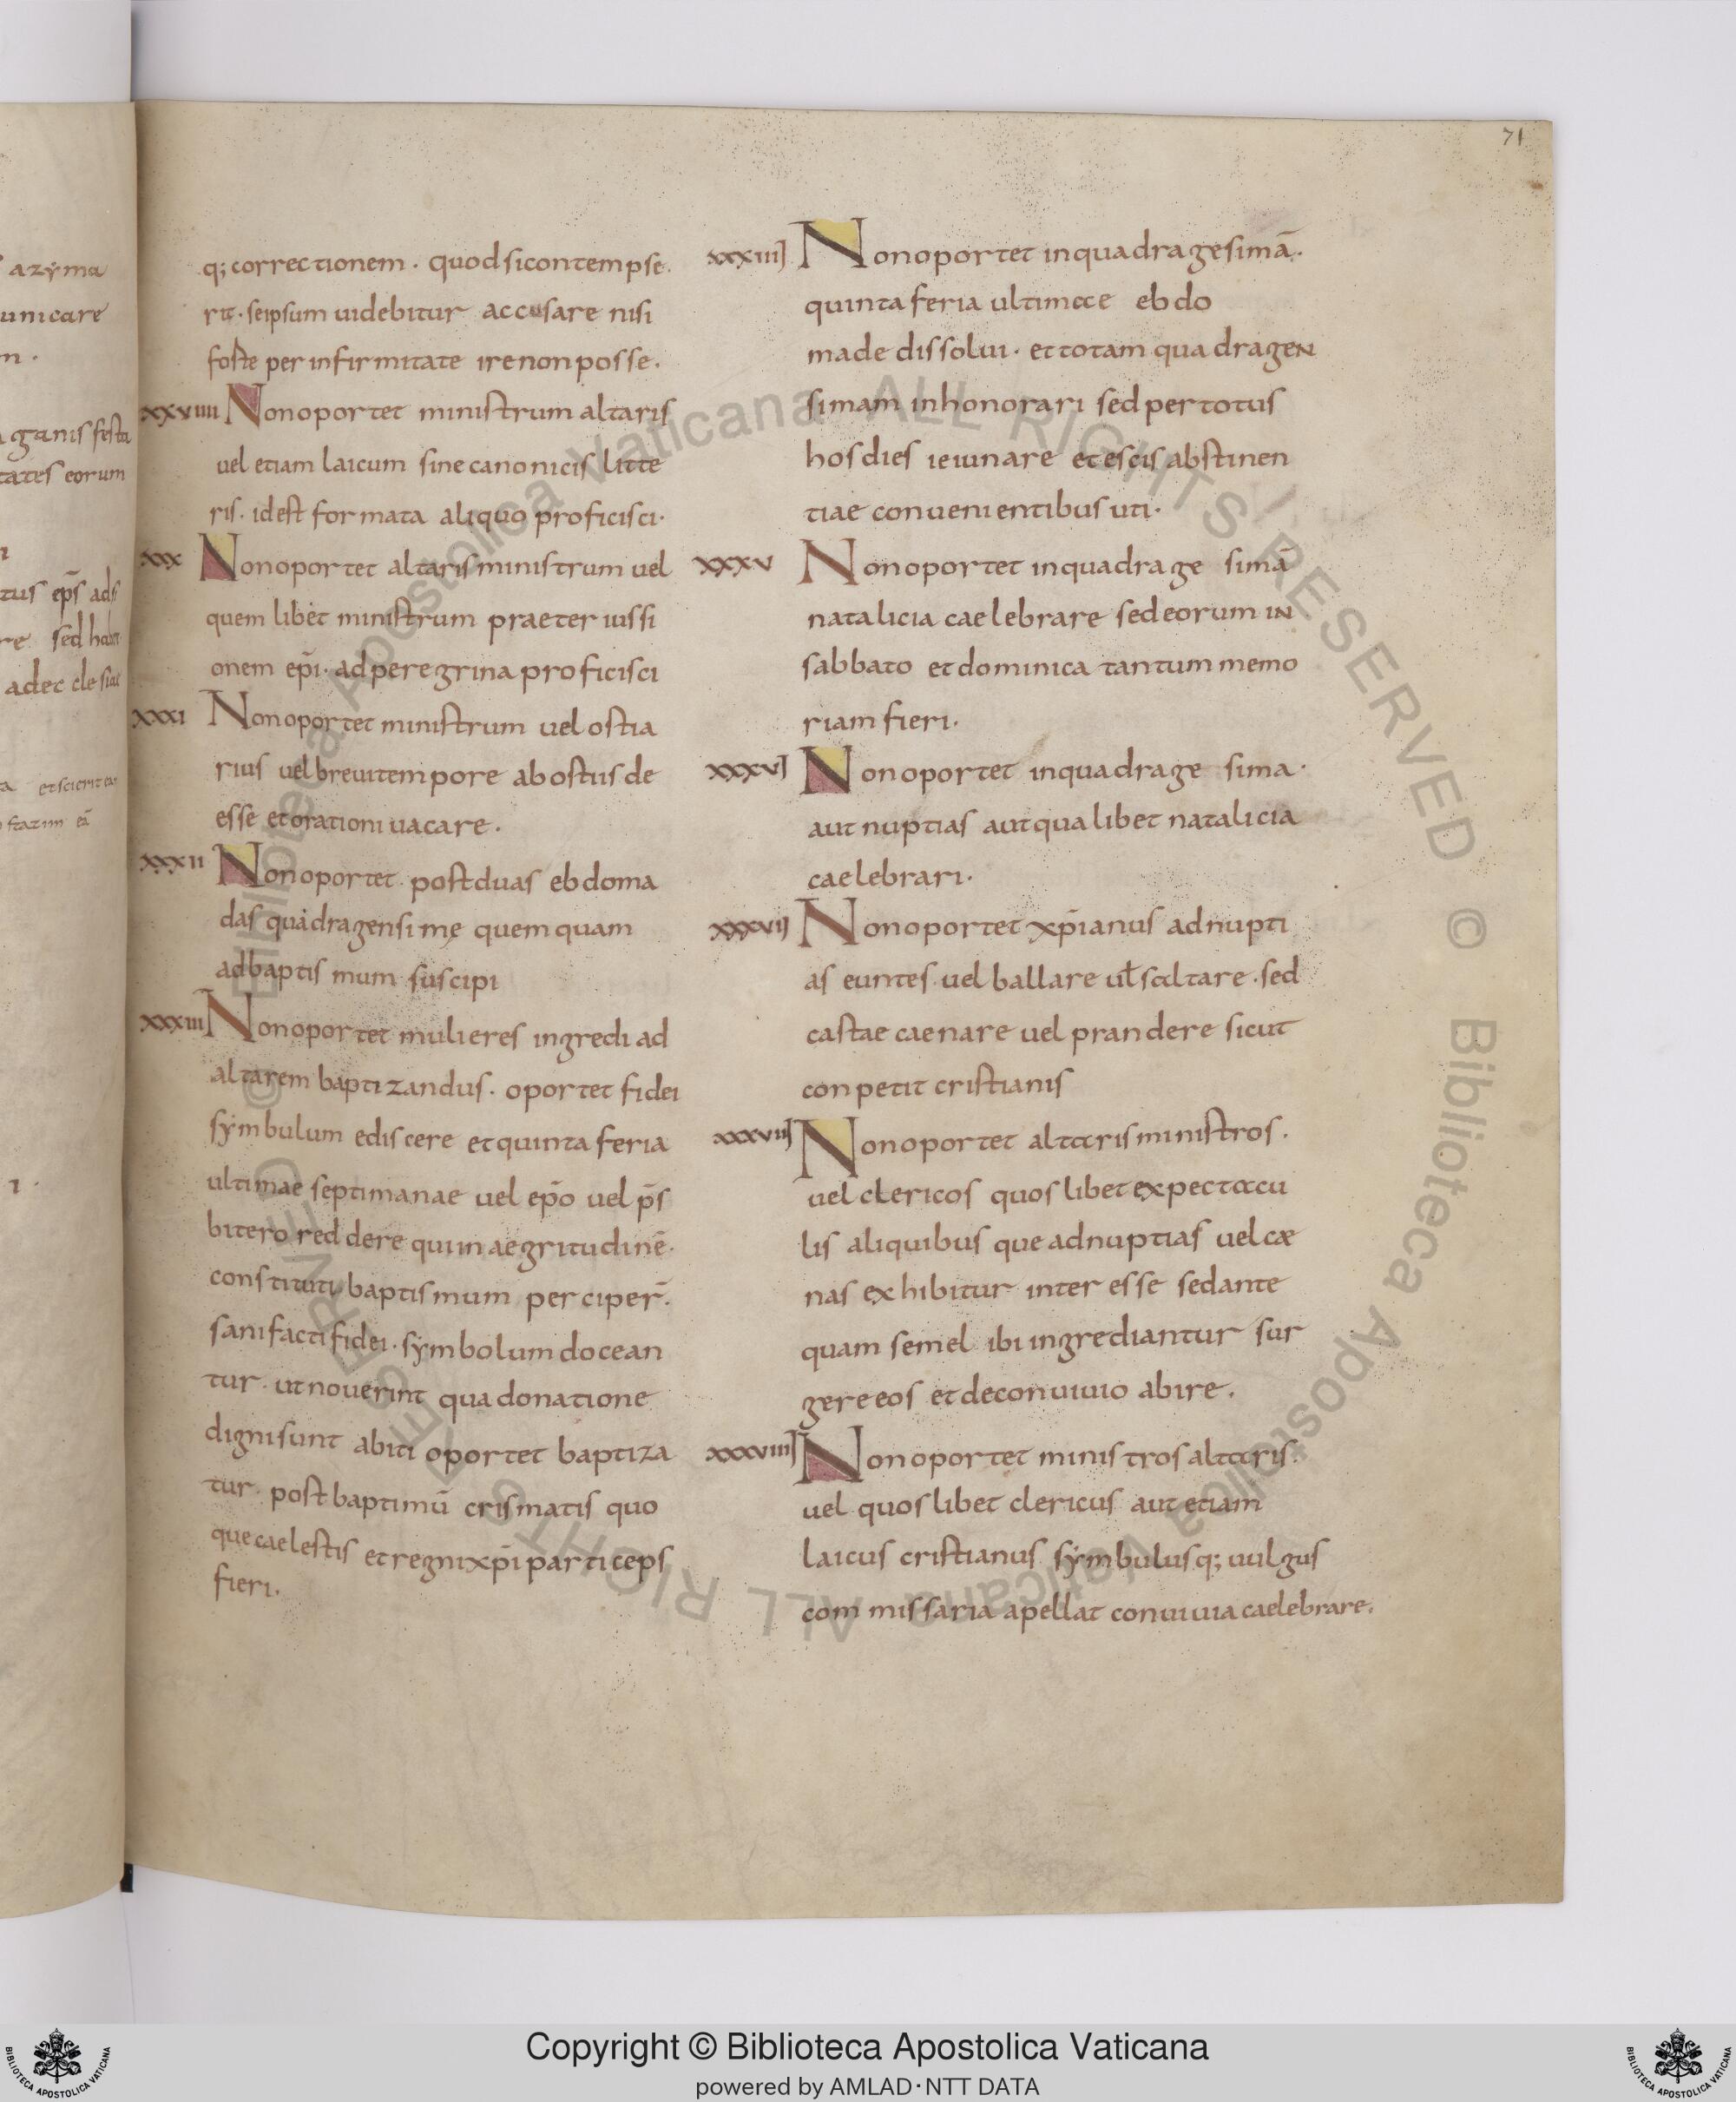 71
q; correctionem · quod si contempse
rit · seipsum uidebitur accusare nisi
foste per infirmitate ire non posse ·
xxviiii Non oportet ministrum altaris
uel etiam laicum sine canonicis litte
ris · id est formata aliquo proficisci ·
xxx Non oportet altaris ministrum uel
quem libet ministrum praeter iussi
onem ep̄i · ad peregrina proficisci
xxxi Non oportet ministrum uel ostia
rius uel breui tempore ab ostiis de
esse et orationi uacare ·
xxxii Non oportet · post duas ebdoma
das quadragensimę quemquam
ad baptismum suscipi
xxxiii Non oportet mulieres ingredi ad
altarem baptizandus · oportet fidei
symbulum ediscere et quinta feria
ultimae septimanae uel ep̄o uel p̄s
bitero reddere qui in aegritudinē ·
constituti baptismum perciper̄ ·
sani facti fidei · symbolum docean
tur · ut nouerint qua donatione
digni sunt abiti oportet baptiza
tur · post baptimū crismatis quo
que caelestis et regni xp̄i particeps
fieri ·
xxxiiii Non oportet in quadragesimā ·
quinta feria ultimae ebdo
made dissolui · et totam quadragen
simam inhonorari sed per totus
hos dies ieiunare et escis abstinen
tiae conuenientibus uti ·
xxxv Non oportet in quadragesimā
natalicia caelebrare sed eorum in
sabbato et dominica tantum memo
riam fieri ·
xxxvi Non oportet in quadragesima ·
aut nuptias aut qualibet natalicia
caelebrari ·
xxxvii Non oportet xp̄ianus ad nupti
as euntes · uel ballare ul̄ saltare · sed
castae caenare uel prandere sicut
conpetit cristianis
xxxviii Non oportet altaris ministros ·
uel clericos quoslibet expectacu
lis aliquibus que ad nuptias uel cae
nas exhibitur interesse sed ante
quam semel ibi ingrediantur sur
gere eos et de conuiuio abire ·
xxxviiii Non oportet ministros altaris ·
uel quoslibet clericus aut etiam
laicus cristianus symbulus q; uulgus
commissaria apellat conuiuia caelebrare ·
Copyright © Biblioteca Apostolica Vaticana
powered by AMLAD·NTT DATA